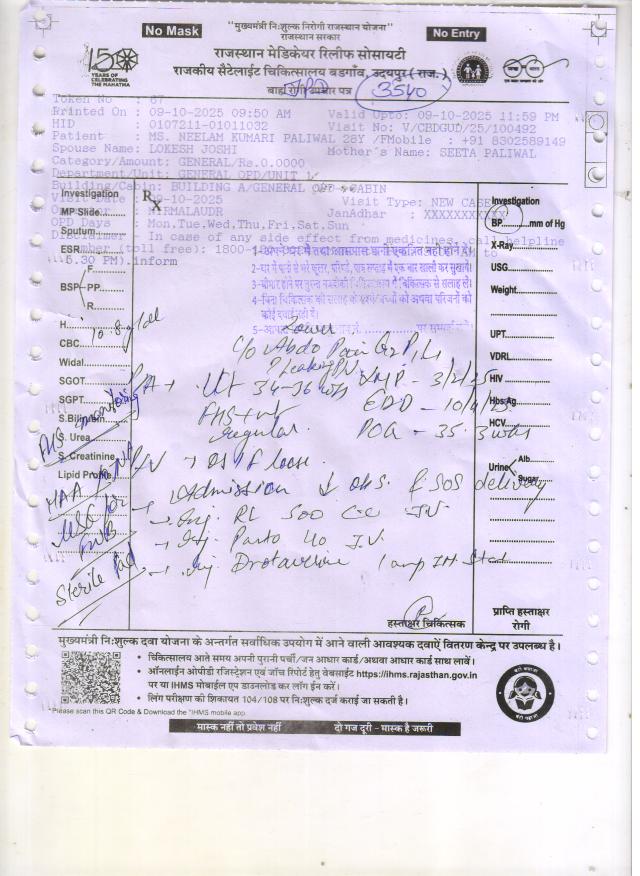 No Mask
"मुख्यमंत्री निःशुल्क निरोगी राजस्थान योजना"
राजस्थान सरकार
No Entry
राजस्थान मेडिकेयर रिलीफ सोसायटी
150
YEARS OF
CELEBRATING
THE MAHATMA
राजकीय सैटेलाईट चिकित्सालय बडगाँव, उदयपुर (राज.)
3540
Token No : 67
Printed On : 09-10-2025 09:50 AM Valid Upto: 09-10-2025 11:59 PM
HID : 0107211-01011032 Visit No: V/CBDGUD/25/100492
Patient : MS. NEELAM KUMARI PALIWAL 28Y /F Mobile : +91 8302589149
Spouse Name: LOKESH JOSHI Mother's Name: SEETA PALIWAL
Category/Amount: GENERAL/Rs.0.0000
Department/Unit: GENERAL OPD/UNIT 1
Building/Cabin: BUILDING A/GENERAL OPD CABIN
Visit Type: NEW CASE
JanAdhar : XXXXXXXXXX
OPD Days : Mon,Tue,Wed,Thu,Fri,Sat,Sun
In case of any side effect from medicines, call helpline
5.30 PM).inform
Rx
Investigation
MP Slide
Sputum
ESR
BSP
F
PP
R
H
10.8 g/dl
CBC
Widal
SGOT
SGPT
S.Bilirubin
S. Urea
S. Creatinine
Lipid Profile
Investigation
BP mm of Hg
X-Ray
USG
Weight
UPT
VDRL
HIV
Hbs Ag
HCV
Urine
Alb.
Sugar
1-अपने घर में तथा आसपास पानी एकत्रित नहीं होने दें।
Lower
C/o Abdo Pain G2P1L1
P/A → Ut 34-36 wks LMP - 3/2/25
FHS +nt EDD - 10/11/25
regular POG - 35.3 wks
FHS monitoring
P/V → OS 1F loose
→ Admission obs. SOS delivery
USG for FWB
→ Inj. RL 500 CC I.V.
→ Inj. Panto 40 I.V.
→ Inj. Drotaverine 1 amp IM Stat
Sterile Pad
हस्ताक्षर चिकित्सक
प्राप्ति हस्ताक्षर
रोगी
मुख्यमंत्री निःशुल्क दवा योजना के अन्तर्गत सर्वाधिक उपयोग में आने वाली आवश्यक दवाऐं वितरण केन्द्र पर उपलब्ध है।
• चिकित्सालय आते समय अपनी पुरानी पर्ची/जन आधार कार्ड/अथवा आधार कार्ड साथ लावें।
• ऑनलाईन ओपीडी रजिस्ट्रेशन एवं जाँच रिपोर्ट हेतु वेबसाईट https://ihms.rajasthan.gov.in
पर या IHMS मोबाईल एप डाउनलोड कर लॉग ईन करें।
• लिंग परीक्षण की शिकायत 104/108 पर निःशुल्क दर्ज कराई जा सकती है।
Please scan this QR Code & Download the "IHMS mobile app
मास्क नहीं तो प्रवेश नहीं दो गज दूरी - मास्क है जरूरी